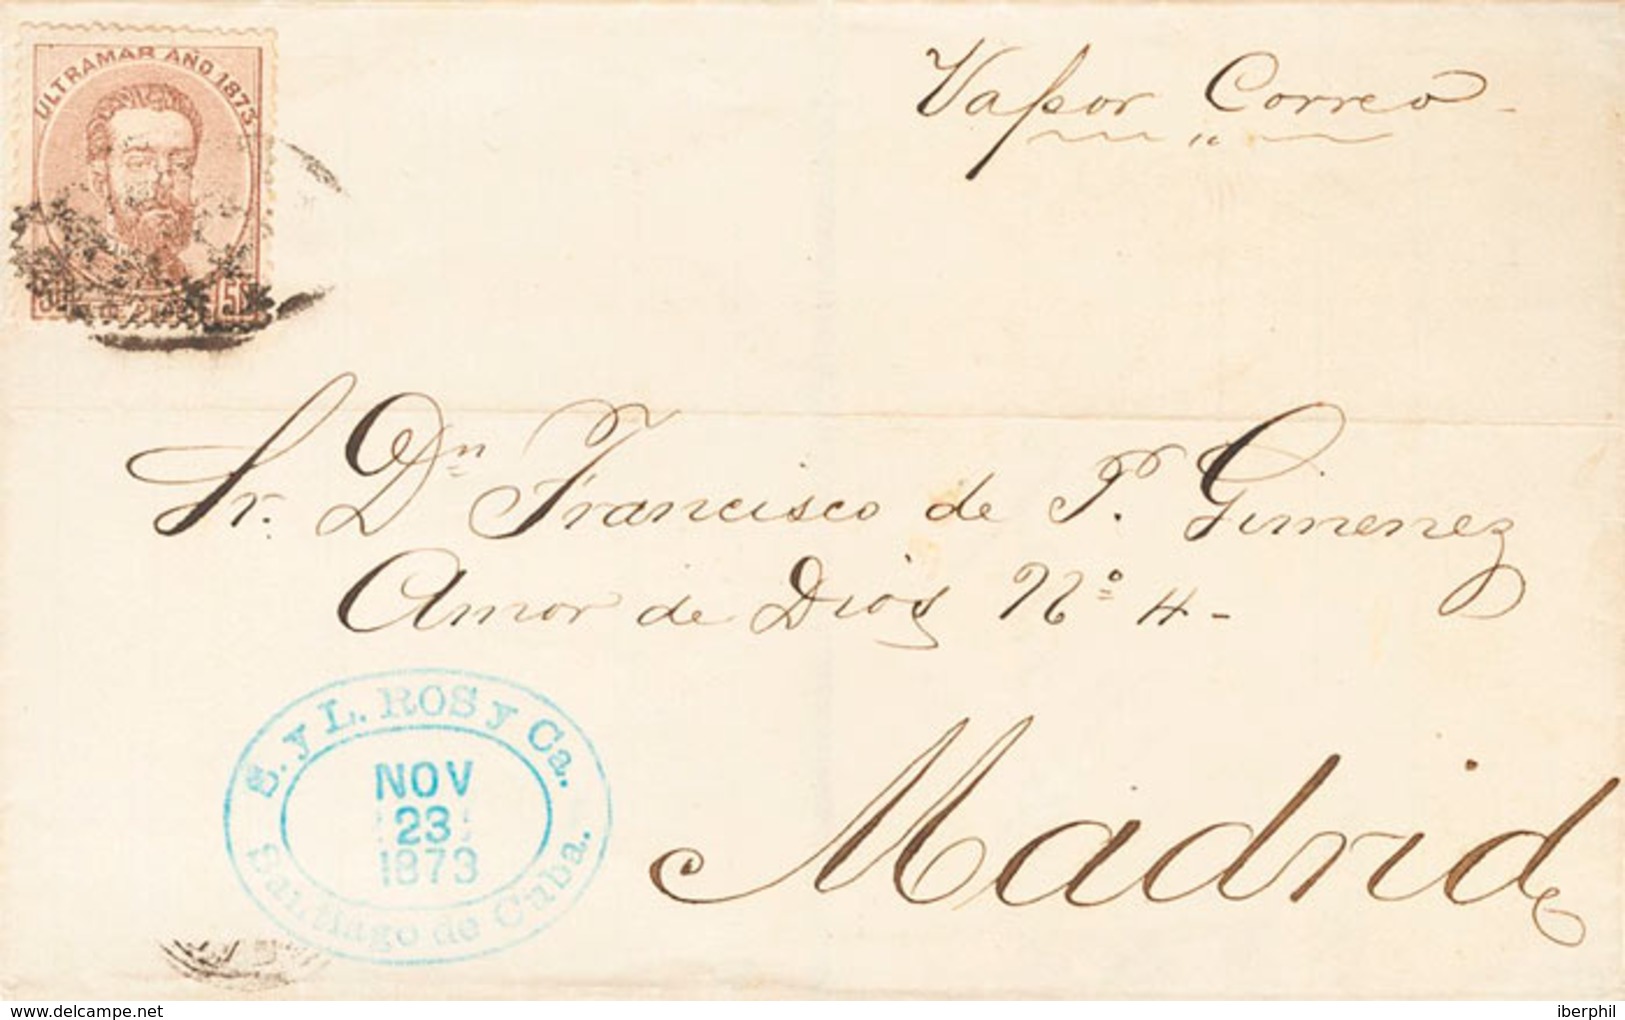 ULTRAMAR AÑO 1873
50
Vapor Correo
Sr. Dn Francisco de P. Gimenez
Amor de Dios Nº 4-
Madrid
S. y L. ROS y Ca.
NOV
23
1873
Santiago de Cuba.
delcampe.net
iberphil